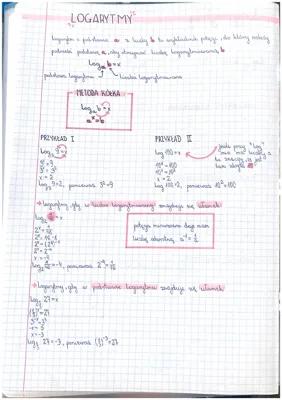 LOGARYTMY
Logarytm o podstawie a z liczby b to wykładnik potęgi, do której należy
podnieść podstawę a, aby otrzymać liczbę logarytmowaną b
log_a b = x
podstawa logarytmu liczba logarytmowana
METODA KÓŁKA
log_a b = x
a^x = b
PRZYKŁAD I
log_3 9 = x
3^x = 9
3^x = 3^2
x = 2
log_3 9 = 2, ponieważ 3^2 = 9
PRZYKŁAD II
log 100 = x
10^x = 100
10^x = 10^2
x = 2
log 100 = 2, ponieważ 10^2 = 100
jeśli przy "log"
nie ma liczby, to
→ logarytmy, gdy w liczbie logarytmowanej znajduje się ułamek
log_2 1/16 = x
2^x = 1/16
2^x = 16^-1
2^x = (2^4)^-1
2^x = 2^-4
x = -4
log_2 1/16 = -4, ponieważ 2^-4 = 1/16
potęga minusowa daje nam
liczbę odwrotną a^-1 = 1/a
→ logarytmy, gdy w podstawie logarytmu znajduje się ułamek
27 = x
(1/3)^x = 27
3^-x = 3^3
-x = 3
x = -3
27 = -3, ponieważ (1/3)^-3 = 27